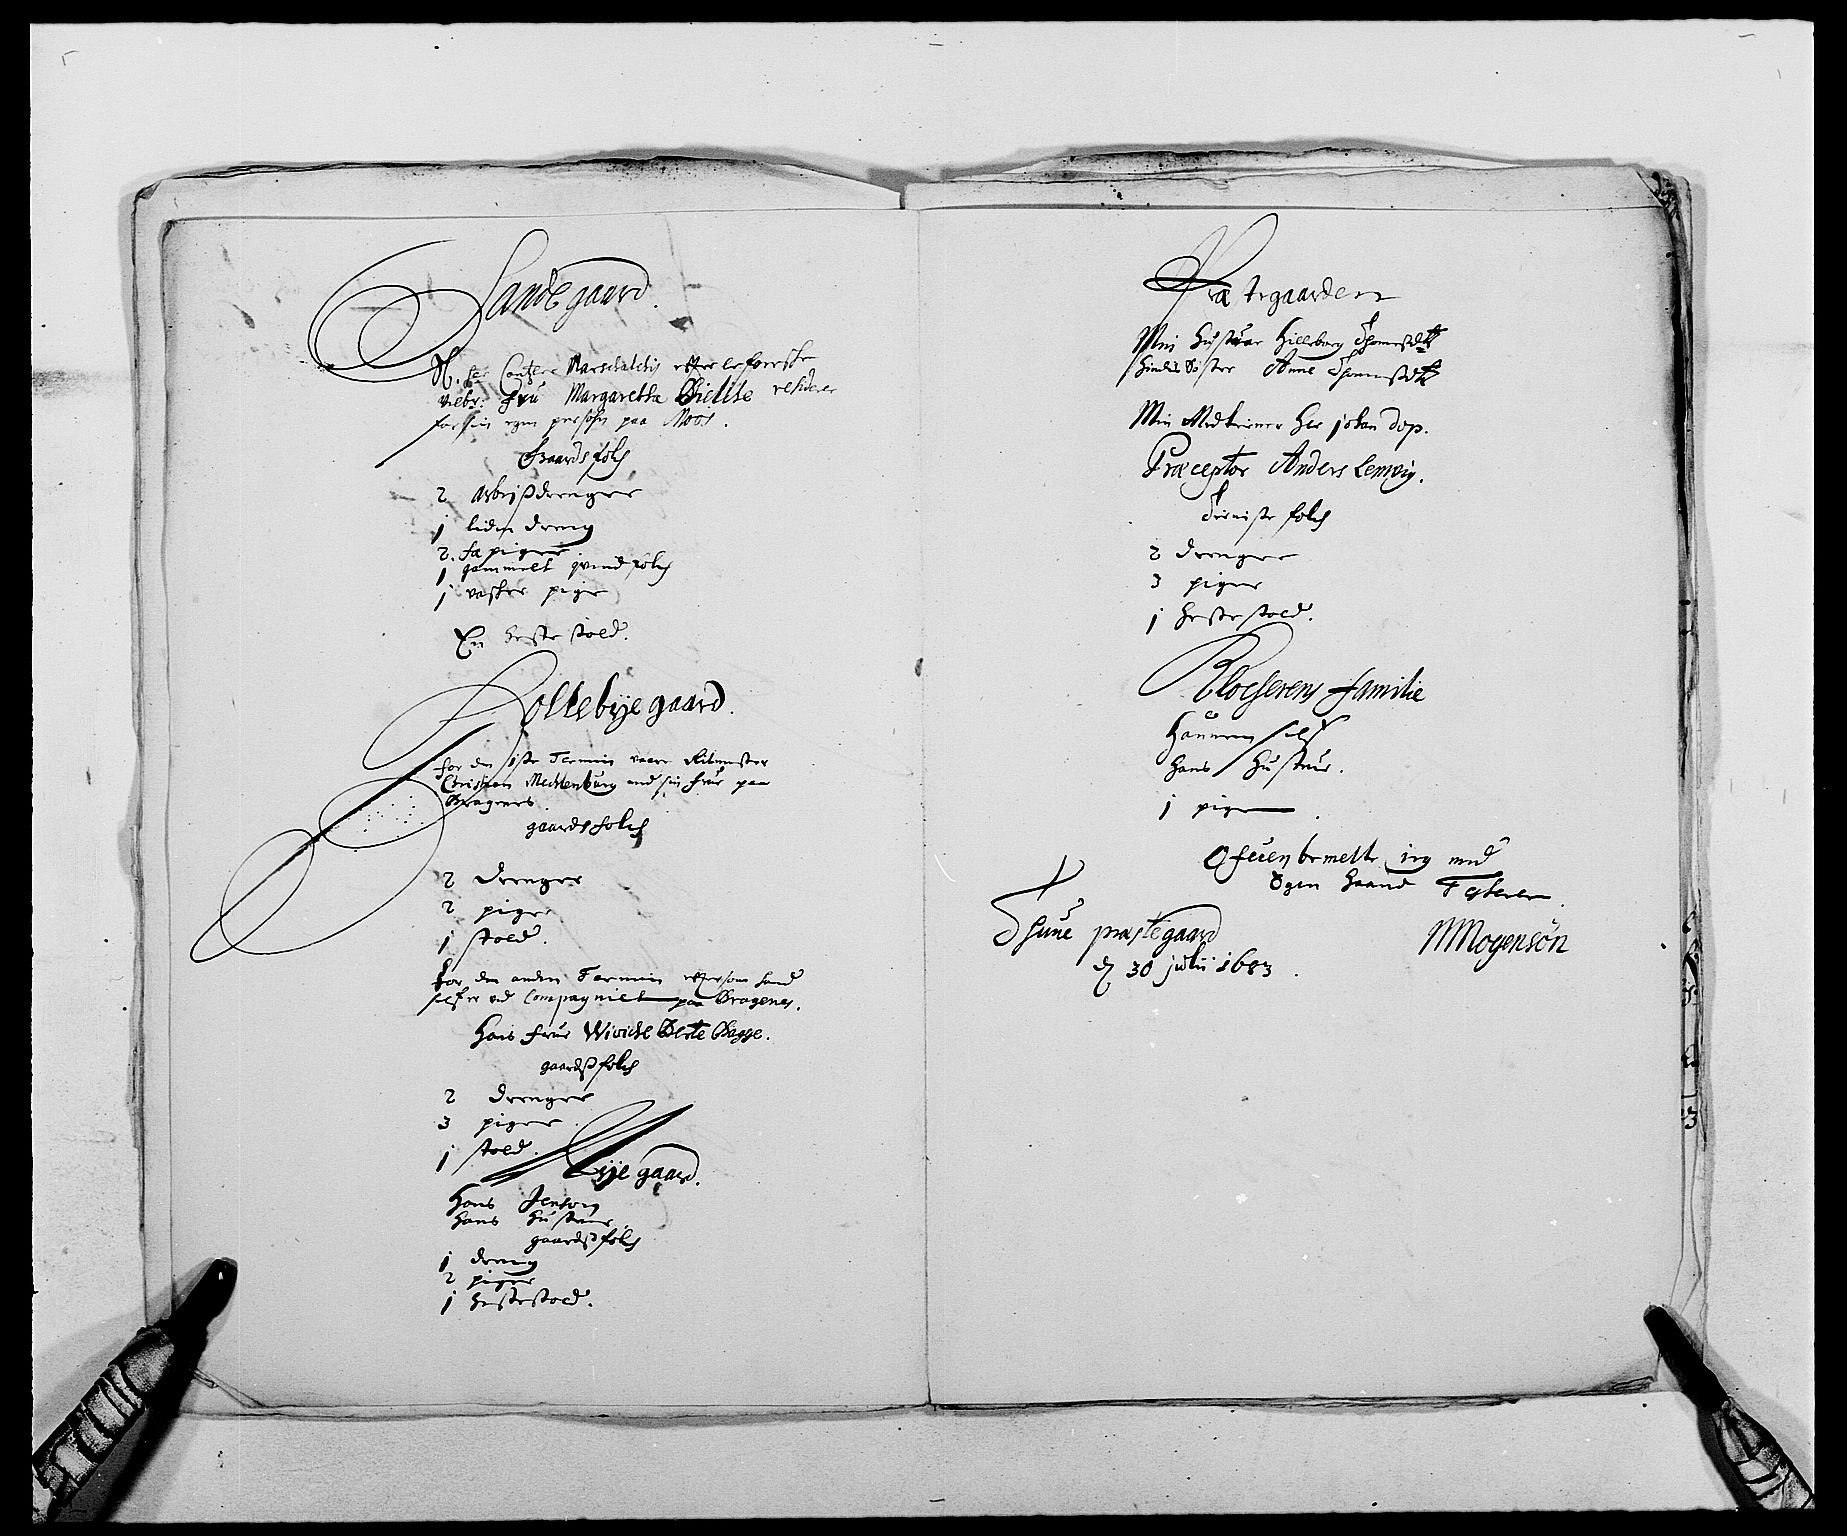 Sande gaard.
Sl. her Cantzler Marschalchis efterlefverske
velbr: Fru Margaretha Bielke residerer
for sin egen persohn paa Moss.
Gaards folch
2 Arbejßdrenger
1 liden dreng
2. fæpiger
1 gammelt qvindfolch
1 vasker pige
En heste stald.
Foltebye gaard.
for den 1ste Termin vaare Ritmester
Christian Mecklenburg med sin frue paa
Bragnes
gaards folch
2 drenger
2 piger
1 stald.
For den anden Termin eftersom hand
self er ved Compagniet paa Bragenes.
Hans frue Wiviche Berte Bagge.
gaardß folch
2 drenger
3 piger
1 stald.
Nye gaard.
Hans Jensøn
hans hustrue
gaardß folch
1 dreng
2 piger
1 hestestald.
Præstegaarden
Min Hustrue Hilleborg Thomesdtt
hindis Søster Anne Thomesdtt
Min Medtienner Her johan Dop.
Præceptor Anders Lemvig.
Tieniste folch
2 drenger
3 piger
1 heste stald.
Klocherens familie
Hannem self
hans Hustrue.
1 pige
Ofvenbemelte jeg med
Egen haand Testerer.
Thune præstegaard
d. 30 julii 1683.
MMogensøn